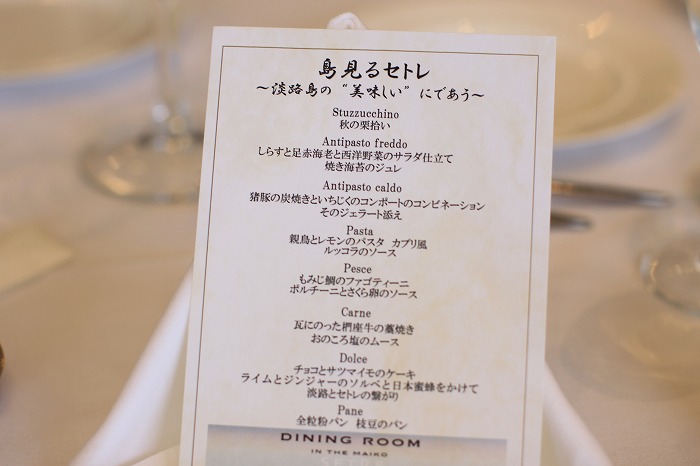 島見るセトレ
～淡路島の“美味しい”にであう～
Stuzzucchino
秋の栗拾い
Antipasto freddo
しらすと足赤海老と西洋野菜のサラダ仕立て
焼き海苔のジュレ
Antipasto caldo
猪豚の炭焼きといちじくのコンポートのコンビネーション
そのジェラート添え
Pasta
親鳥とレモンのパスタ カプリ風
ルッコラのソース
Pesce
もみじ鯛のファゴティーニ
ポルチーニとさくら卵のソース
Carne
瓦にのった椚座牛の藁焼き
おのころ塩のムース
Dolce
チョコとサツマイモのケーキ
ライムとジンジャーのソルベと日本蜜蜂をかけて
淡路とセトレの繋がり
Pane
全粒粉パン 枝豆のパン
DINING ROOM
IN THE MAIKO